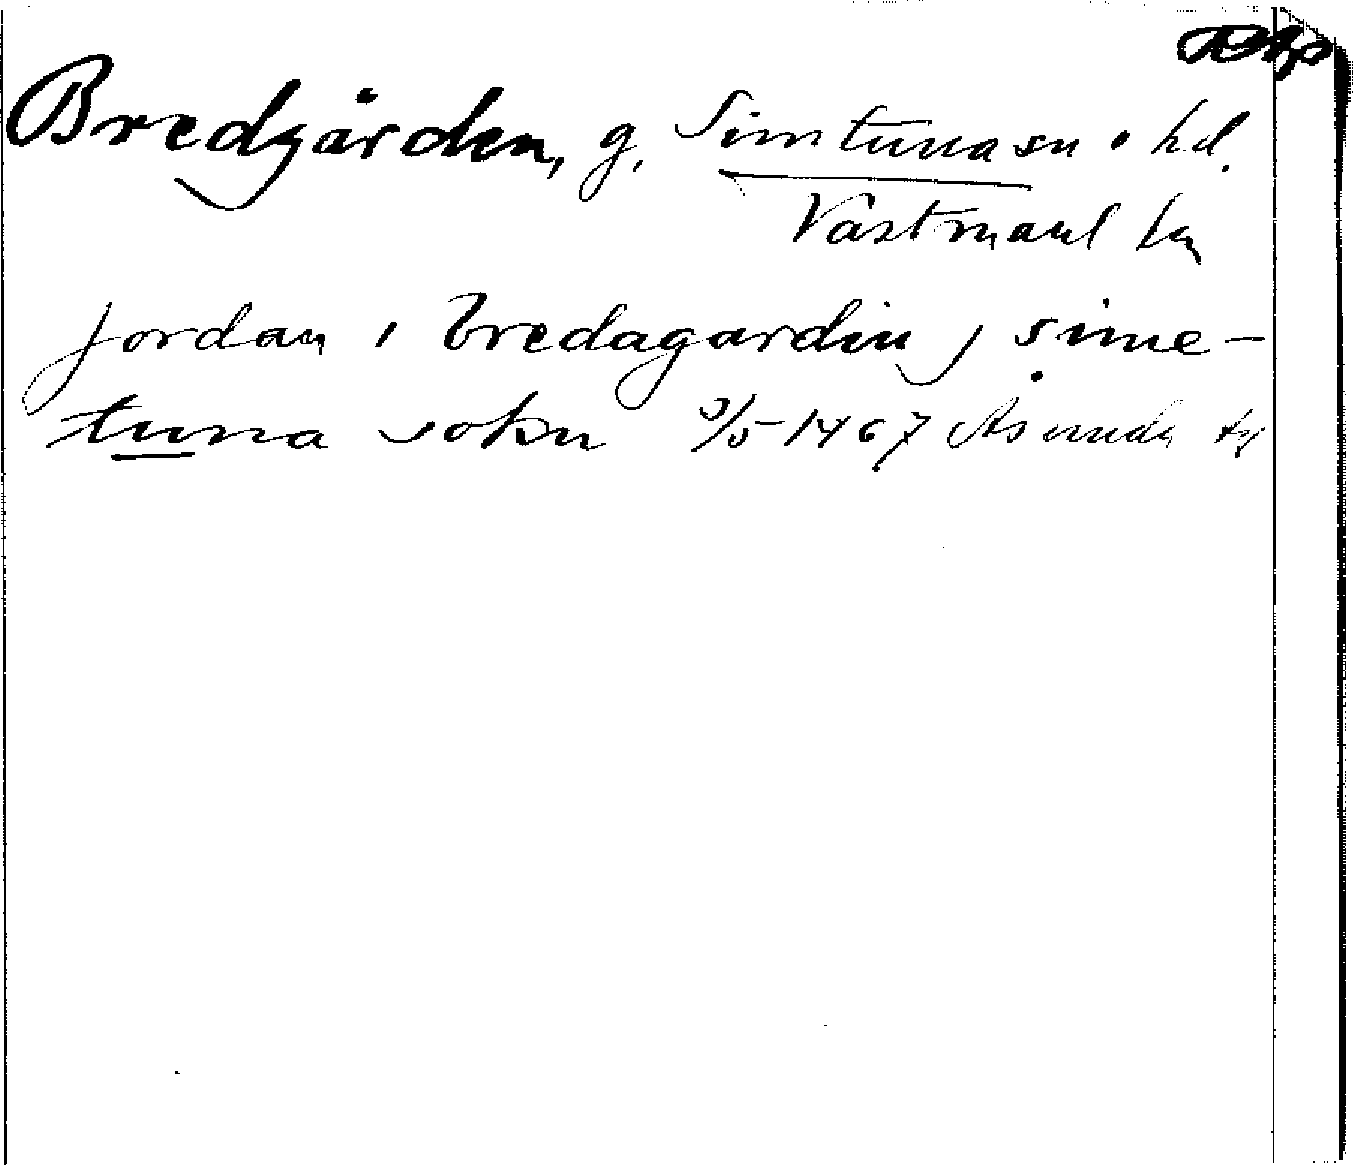 Bredgården, g, Simtuna sn o hd.
Västmanl ln
jordan i bredagardin j sime-
tuna sokn 3/5 1467 Åsunda